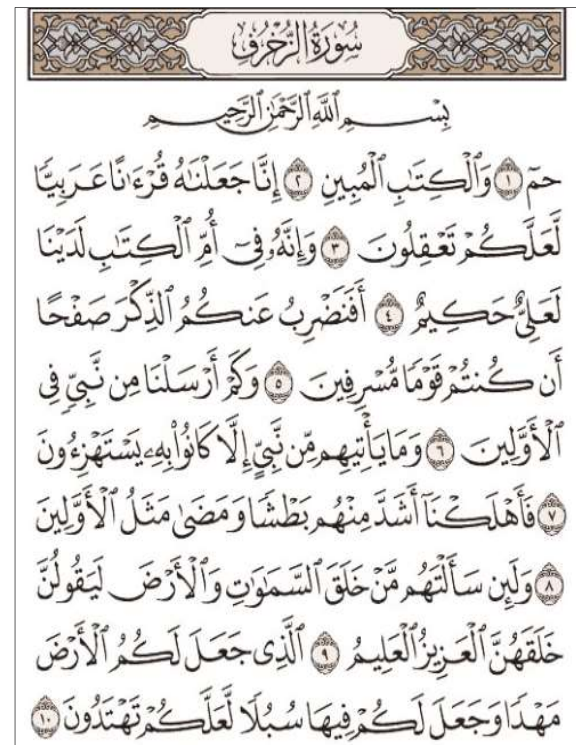 سُورَةُ الزُّخْرُفِ
بِسْمِ ٱللَّهِ ٱلرَّحْمَٰنِ ٱلرَّحِيمِ
حمٓ ١ وَٱلْكِتَٰبِ ٱلْمُبِينِ ٢ إِنَّا جَعَلْنَٰهُ قُرْءَٰنًا عَرَبِيًّا
لَّعَلَّكُمْ تَعْقِلُونَ ٣ وَإِنَّهُۥ فِىٓ أُمِّ ٱلْكِتَٰبِ لَدَيْنَا
لَعَلِىٌّ حَكِيمٌ ٤ أَفَنَضْرِبُ عَنكُمُ ٱلذِّكْرَ صَفْحًا
أَن كُنتُمْ قَوْمًا مُّسْرِفِينَ ٥ وَكَمْ أَرْسَلْنَا مِن نَّبِىٍّ فِى
ٱلْأَوَّلِينَ ٦ وَمَا يَأْتِيهِم مِّن نَّبِىٍّ إِلَّا كَانُوا۟ بِهِۦ يَسْتَهْزِءُونَ
٧ فَأَهْلَكْنَآ أَشَدَّ مِنْهُم بَطْشًا وَمَضَىٰ مَثَلُ ٱلْأَوَّلِينَ
٨ وَلَئِن سَأَلْتَهُم مَّنْ خَلَقَ ٱلسَّمَٰوَٰتِ وَٱلْأَرْضَ لَيَقُولُنَّ
خَلَقَهُنَّ ٱلْعَزِيزُ ٱلْعَلِيمُ ٩ ٱلَّذِى جَعَلَ لَكُمُ ٱلْأَرْضَ
مَهْدًا وَجَعَلَ لَكُمْ فِيهَا سُبُلًا لَّعَلَّكُمْ تَهْتَدُونَ ١٠